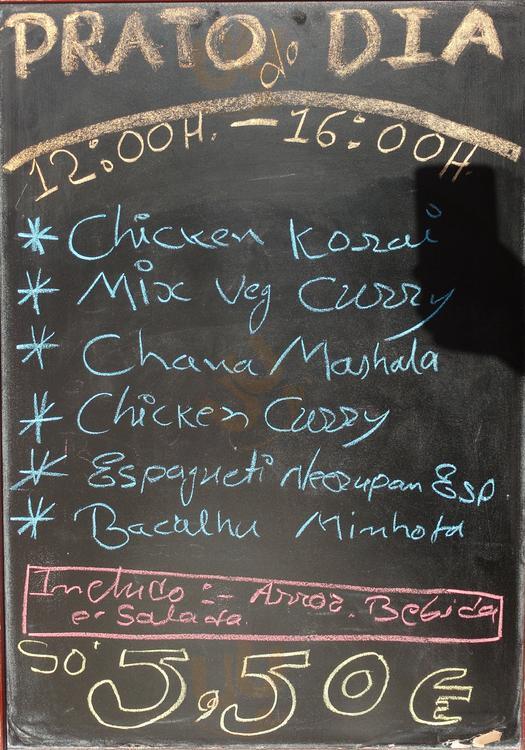 PRATO do DIA
12:00H. — 16:00H.
* Chicken Korai
* Mix Veg Curry
* Chana Mashala
* Chicken Curry
* Espagueti Esp
* Bacalhu Minhota
Includo :- Arroz. Bebida
e Salada.
Só 5,50€